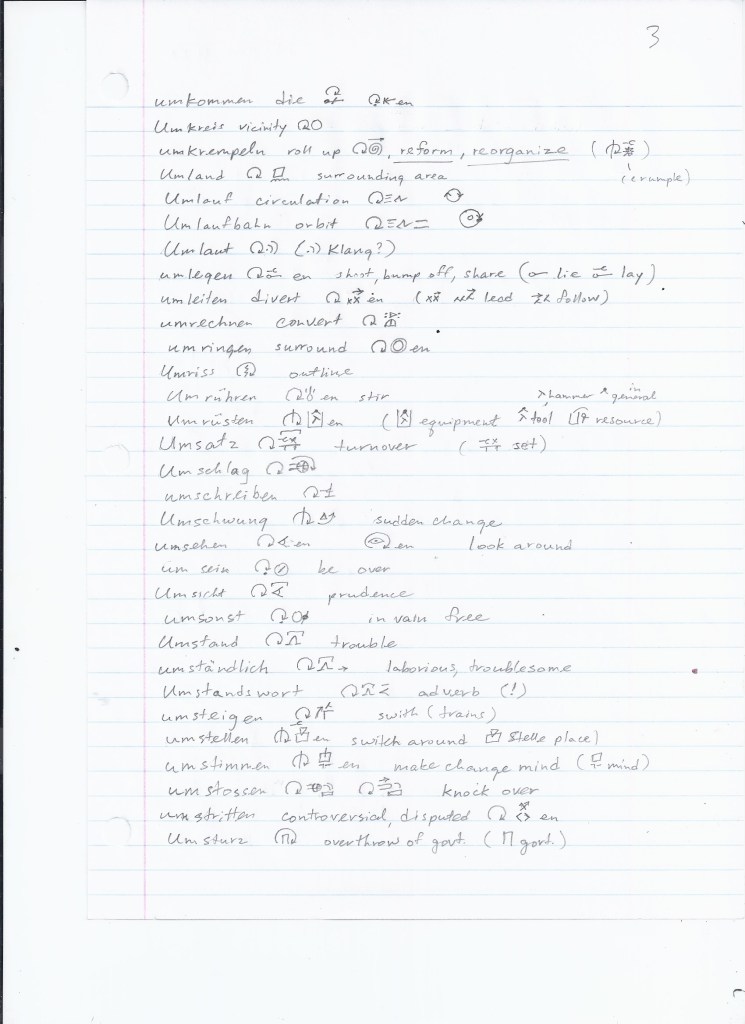 3
umkommen die en
Umkreis vicinity
umkrempeln roll up , reform , reorganize ( )
Umland surrounding area (crumple)
Umlauf circulation
Umlaufbahn orbit
Umlaut ( Klang?)
umlegen en shoot, bump off, share ( lie lay)
umleiten divert en ( lead follow)
umrechnen convert
umringen surround en
Umriss outline
Umrühren en stir hammer in general
Umrüsten en ( equipment tool resource)
Umsatz turnover ( set)
Umschlag
umschreiben
Umschwung sudden change
umsehen en en look around
um sein be over
Umsicht prudence
umsonst in vain free
Umstand trouble
umständlich laborious, troublesome
Umstandswort adverb (!)
umsteigen swith (trains)
umstellen en switch around Stelle place)
umstimmen en make change mind ( mind)
umstossen knock over
umstritten controversial, disputed en
Umsturz overthrow of govt. ( govt.)